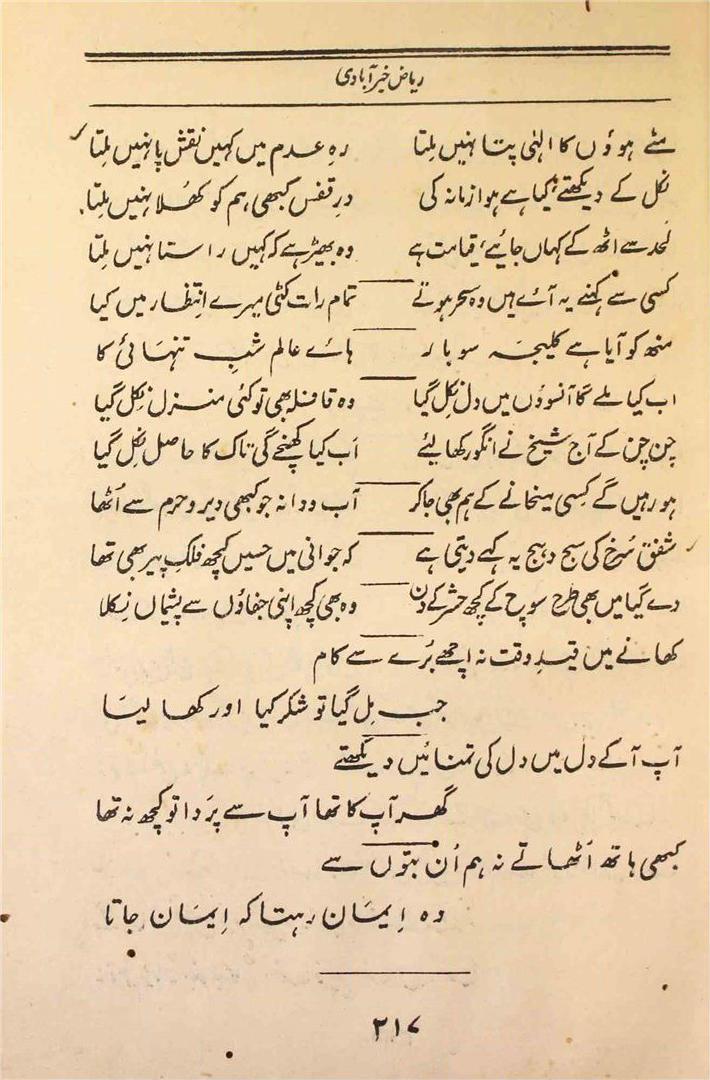 ریاض خیرآبادی
مٹے ہوؤں کا الٰہی پتا نہیں مِلتا رہِ عدم میں کہیں نقشِ پا نہیں مِلتا
نکل کے دیکھتے، کیا ہے ہوا زمانہ کی درِ قفس کبھی ہم کو کھُلا نہیں مِلتا
لحد سے اٹھ کے کہاں جائیے، قیامت ہے وہ بھیڑ ہے کہ کہیں راستا نہیں مِلتا
کسی سے کہنے یہ آئے ہیں وہ سحر ہوتے تمام رات کٹی میرے اِنتظار میں کیا
منھ کو آیا ہے کلیجہ سو بار ہائے عالم شبِ تنہائی کا
اب کیا ملے گا آنسوؤں میں دل نِکل گیا وہ قافلہ بھی تو کئی منزل نِکل گیا
چن چن کے آج شیخ نے انگور کھا لیے اَب کیا کھنچے گی تاک کا حاصل نِکل گیا
ہو رہیں گے کِسی میخانے کے ہم بھی جا کر آب و دانہ جو کبھی دیر و حرم سے اُٹھا
شفقِ سُرخ کی سج دہج یہ کہے دیتی ہے کہ جوانی میں حسیں کچھ فلکِ پیر بھی تھا
دے گیا میں بھی طرح سوچ کے کچھ حشر کے دن وہ بھی کچھ اپنی جفاؤں سے پشیماں نِکلا
کھانے میں قیدِ وقت نہ اچھے بُرے سے کام
جب مِل گیا تو شکر کیا اور کھا لیتا
آپ آ کے دل میں دل کی تمنائیں دیکھتے
گھر آپ کا تھا آپ سے پَردا تو کچھ نہ تھا
کبھی ہاتھ اُٹھاتے نہ ہم اُن بتوں سے
وہ اِیمَان رہتا کہ اِیمَان جاتا
۲۱۷